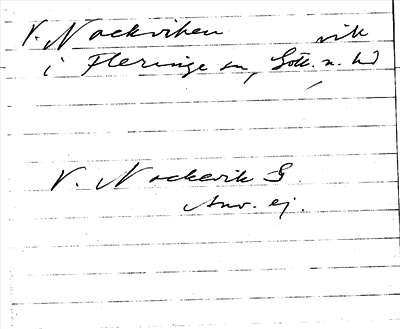 V. Nackviken vik
i Fleringe sn, Gotl. n. hd
V. Nackevik G
Anv. ej.